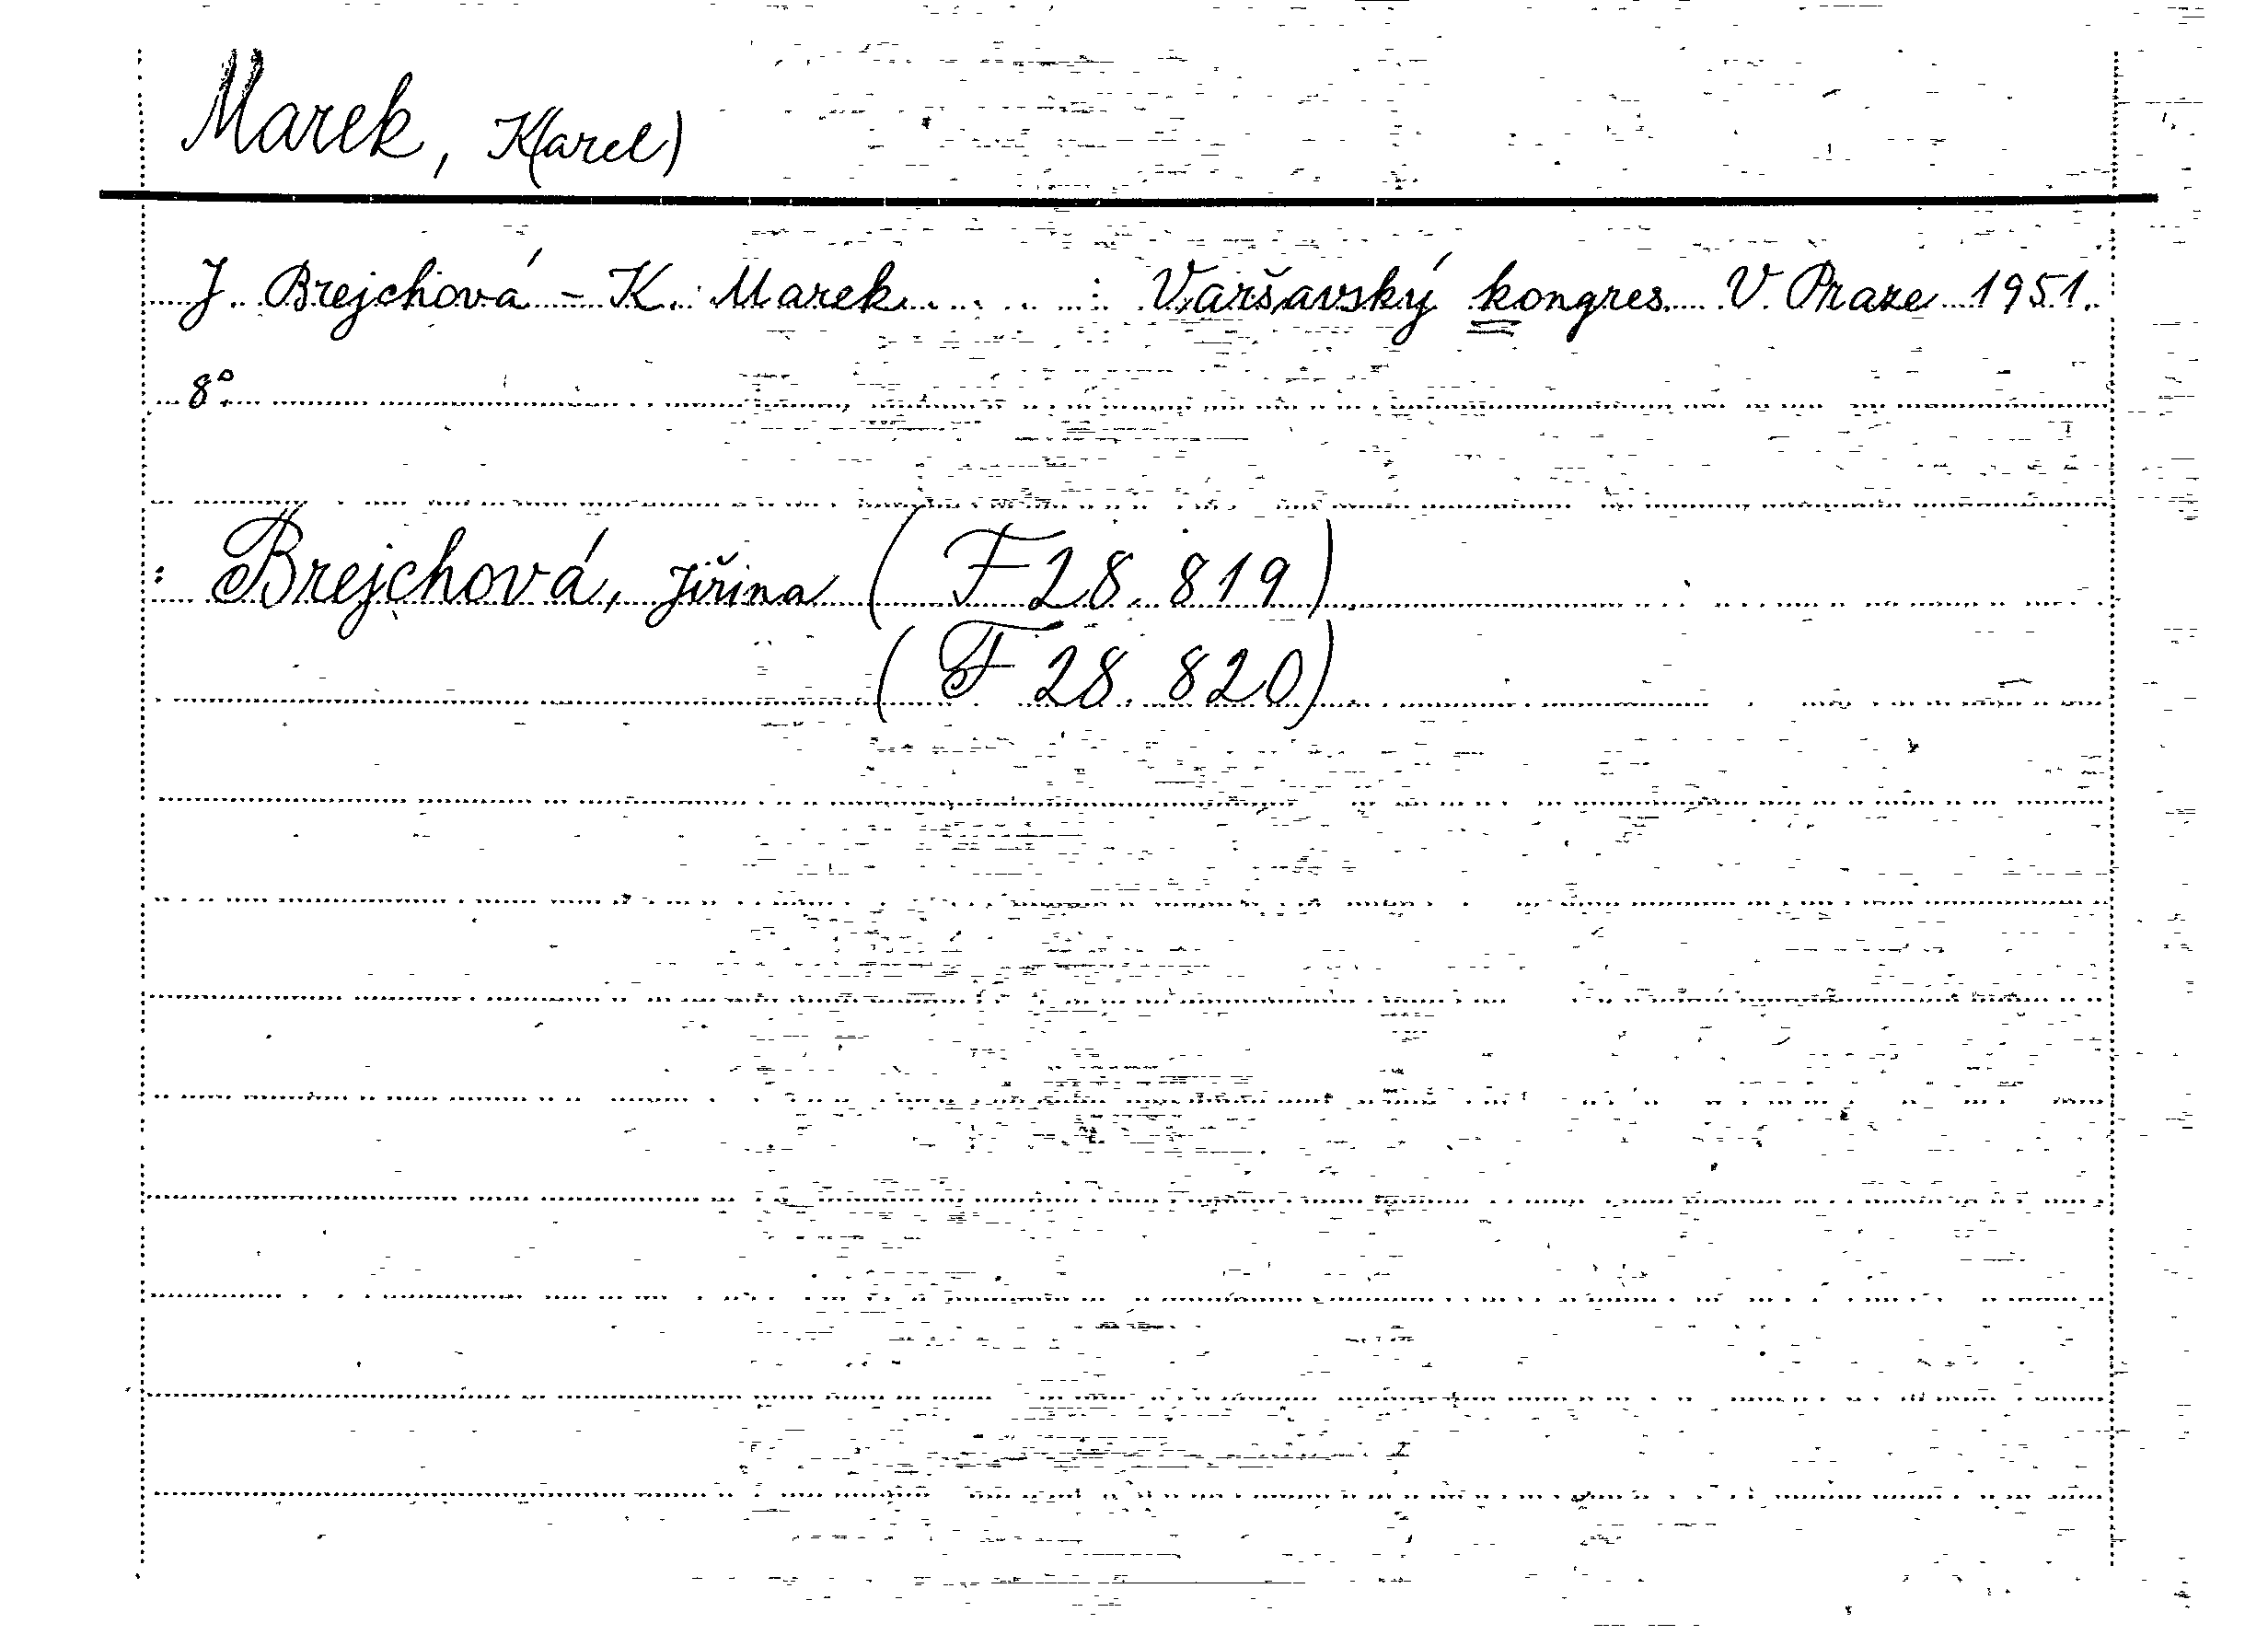 Marek, K(arel)
J. Brejchová - K. Marek . . . : Varšavský kongres. V Praze 1951.
8°.
: Brejchová, Jiřina (F 28.819)
(F 28.820)